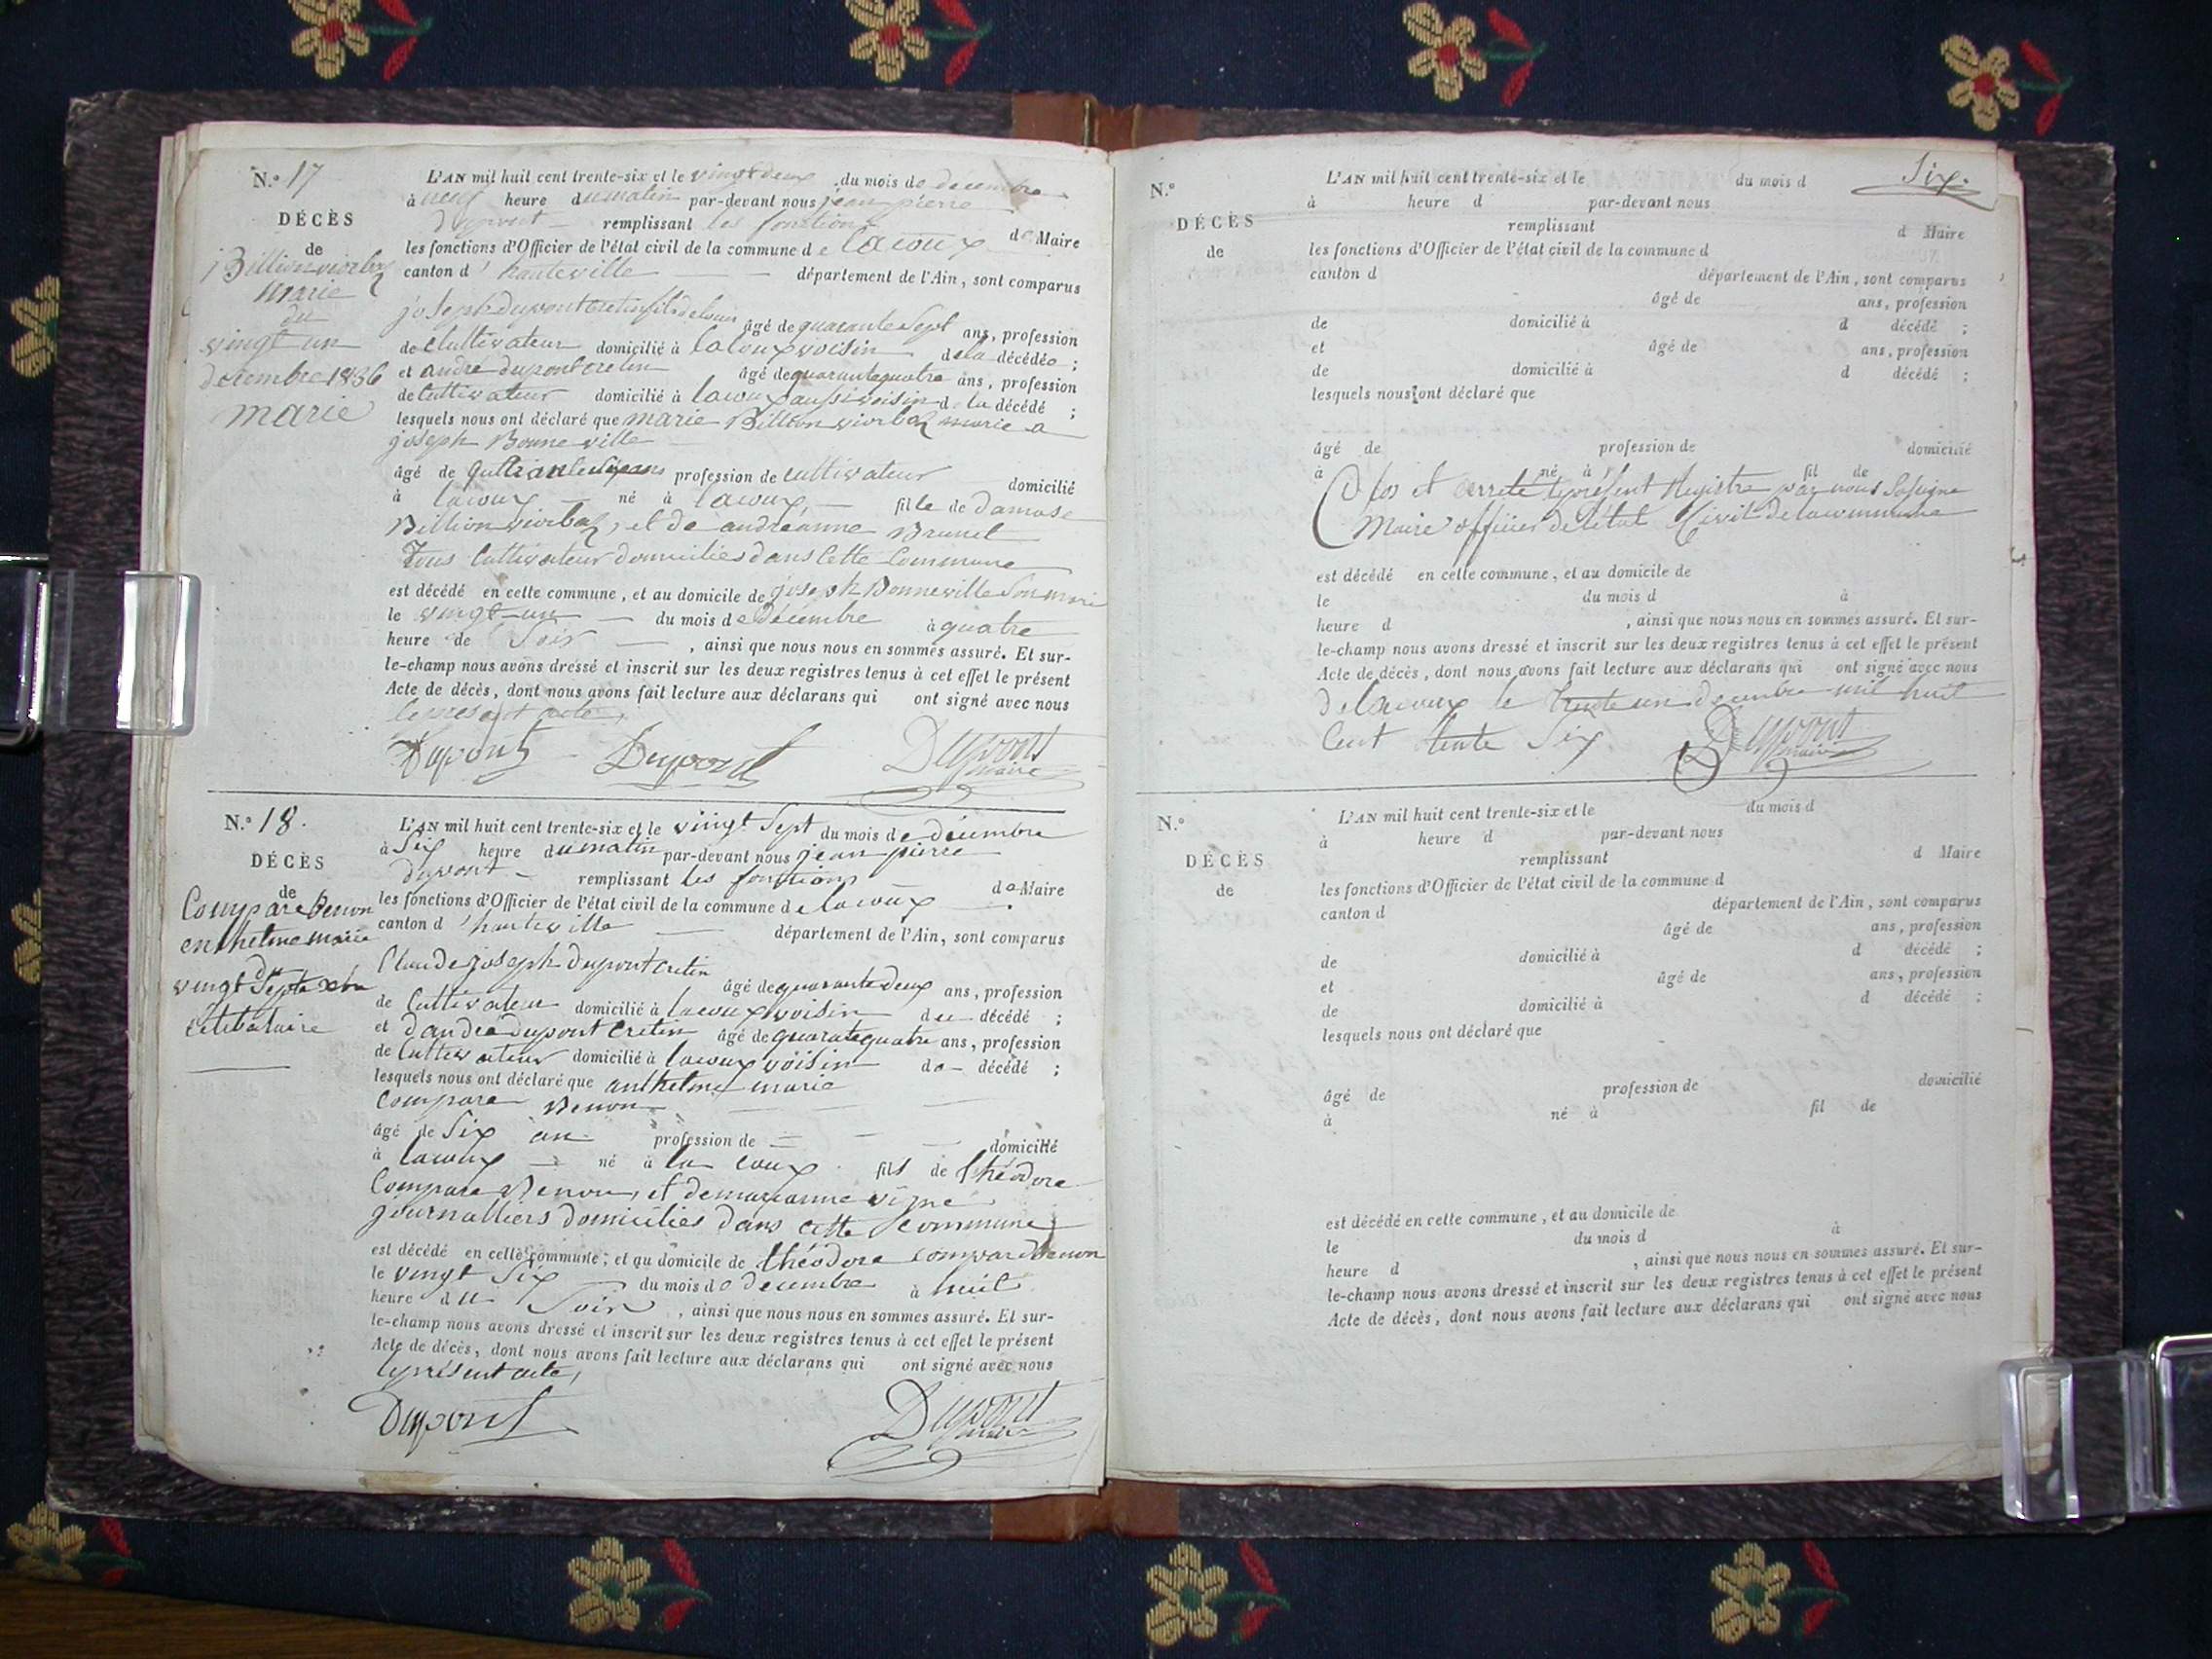 N.º 17
DÉCÈS
de
Billion viorbaz
marie
du
vingt un
decembre 1836
marie
L'AN mil huit cent trente-six et le vingt deux du mois de décembre
à neuf heure du matin par-devant nous jean pierre
dupont remplissant les fonctions de Maire
les fonctions d'Officier de l'état civil de la commune de lacoux
canton d'hauteville département de l'Ain, sont comparus
joseph dupont cretin fils de louis âgé de quarante sept ans, profession
de Cultivateur domicilié à lacoux voisin de la décédée ;
et andré dupont cretin âgé de quarante quatre ans, profession
de Cultivateur domicilié à lacoux aussi voisin de la décédé ;
lesquels nous ont déclaré que marie Billion viorbaz marie a
joseph Bonneville
âgé de ans profession de cultivateur domicilié
à lacoux né à lacoux, fille de damase
Billion viorbaz, et de andréanne Brunet
Tous Cultivateur domiciliés dans Cette Commune
est décédé en cette commune, et au domicile de joseph Bonneville Son mari
le vingt-un du mois de Décembre à quatre
heure de Soir, ainsi que nous nous en sommes assuré. Et sur-
le-champ nous avons dressé et inscrit sur les deux registres tenus à cet effet le présent
Acte de décès, dont nous avons fait lecture aux déclarans qui ont signé avec nous
le present acte,
Dupont Dupont Dupont
maire
N.º 18.
DÉCÈS
de
Compare Benon
enthelme marie
du
vingt Septe xbre
célibataire
L'AN mil huit cent trente-six et le vingt Sept du mois de décembre
à Six heure du matin par-devant nous jean pierre
dupont remplissant les fonctions de Maire
les fonctions d'Officier de l'état civil de la commune de lacoux
canton d'hauteville département de l'Ain, sont comparus
Claude joseph dupont cretin
âgé de quarante deux ans, profession
de Cultivateur domicilié à lacoux voisin du décédé ;
et d'andré dupont Cretin âgé de quarate quatre ans, profession
de Cultivateur domicilié à lacoux voisin de décédé ;
lesquels nous ont déclaré que anthelme marie
Compare Benon
âgé de Six an profession de domicilié
à lacoux né à la coux fils de théodore
Compare Benon, et de marianne vigne
journalliers domiciliés dans cette Commune
est décédé en cette commune, et au domicile de théodore compare Benon
le vingt Six du mois de decembre à huit
heure du Soir, ainsi que nous nous en sommes assuré. Et sur-
le-champ nous avons dressé et inscrit sur les deux registres tenus à cet effet le présent
Acte de décès, dont nous avons fait lecture aux déclarans qui ont signé avec nous
le présent acte,
Dupont Dupont
maire
Six.
N.º
DÉCÈS
de
L'AN mil huit cent trente-six et le du mois d
à heure d par-devant nous
remplissant d Maire
les fonctions d'Officier de l'état civil de la commune d
canton d département de l'Ain, sont comparus
âgé de ans, profession
de domicilié à d décédé ;
et âgé de ans, profession
de domicilié à d décédé ;
lesquels nous ont déclaré que
âgé de profession de domicilié
à né à fil de
Clos et arreté le présent Registre par nous Soussigné
Maire officier de l'état Civil de la commune
est décédé en cette commune, et au domicile de
le du mois d à
heure d , ainsi que nous nous en sommes assuré. Et sur-
le-champ nous avons dressé et inscrit sur les deux registres tenus à cet effet le présent
Acte de décès, dont nous avons fait lecture aux déclarans qui ont signé avec nous
de lacoux le trente un decembre mil huit
Cent trente Six Dupont
maire
N.º
DÉCÈS
de
L'AN mil huit cent trente-six et le du mois d
à heure d par-devant nous
remplissant d Maire
les fonctions d'Officier de l'état civil de la commune d
canton d département de l'Ain, sont comparus
âgé de ans, profession
de domicilié à d décédé ;
et âgé de ans, profession
de domicilié à d décédé ;
lesquels nous ont déclaré que
âgé de profession de domicilié
à né à fil de
est décédé en cette commune, et au domicile de
le du mois d à
heure d , ainsi que nous nous en sommes assuré. Et sur-
le-champ nous avons dressé et inscrit sur les deux registres tenus à cet effet le présent
Acte de décès, dont nous avons fait lecture aux déclarans qui ont signé avec nous